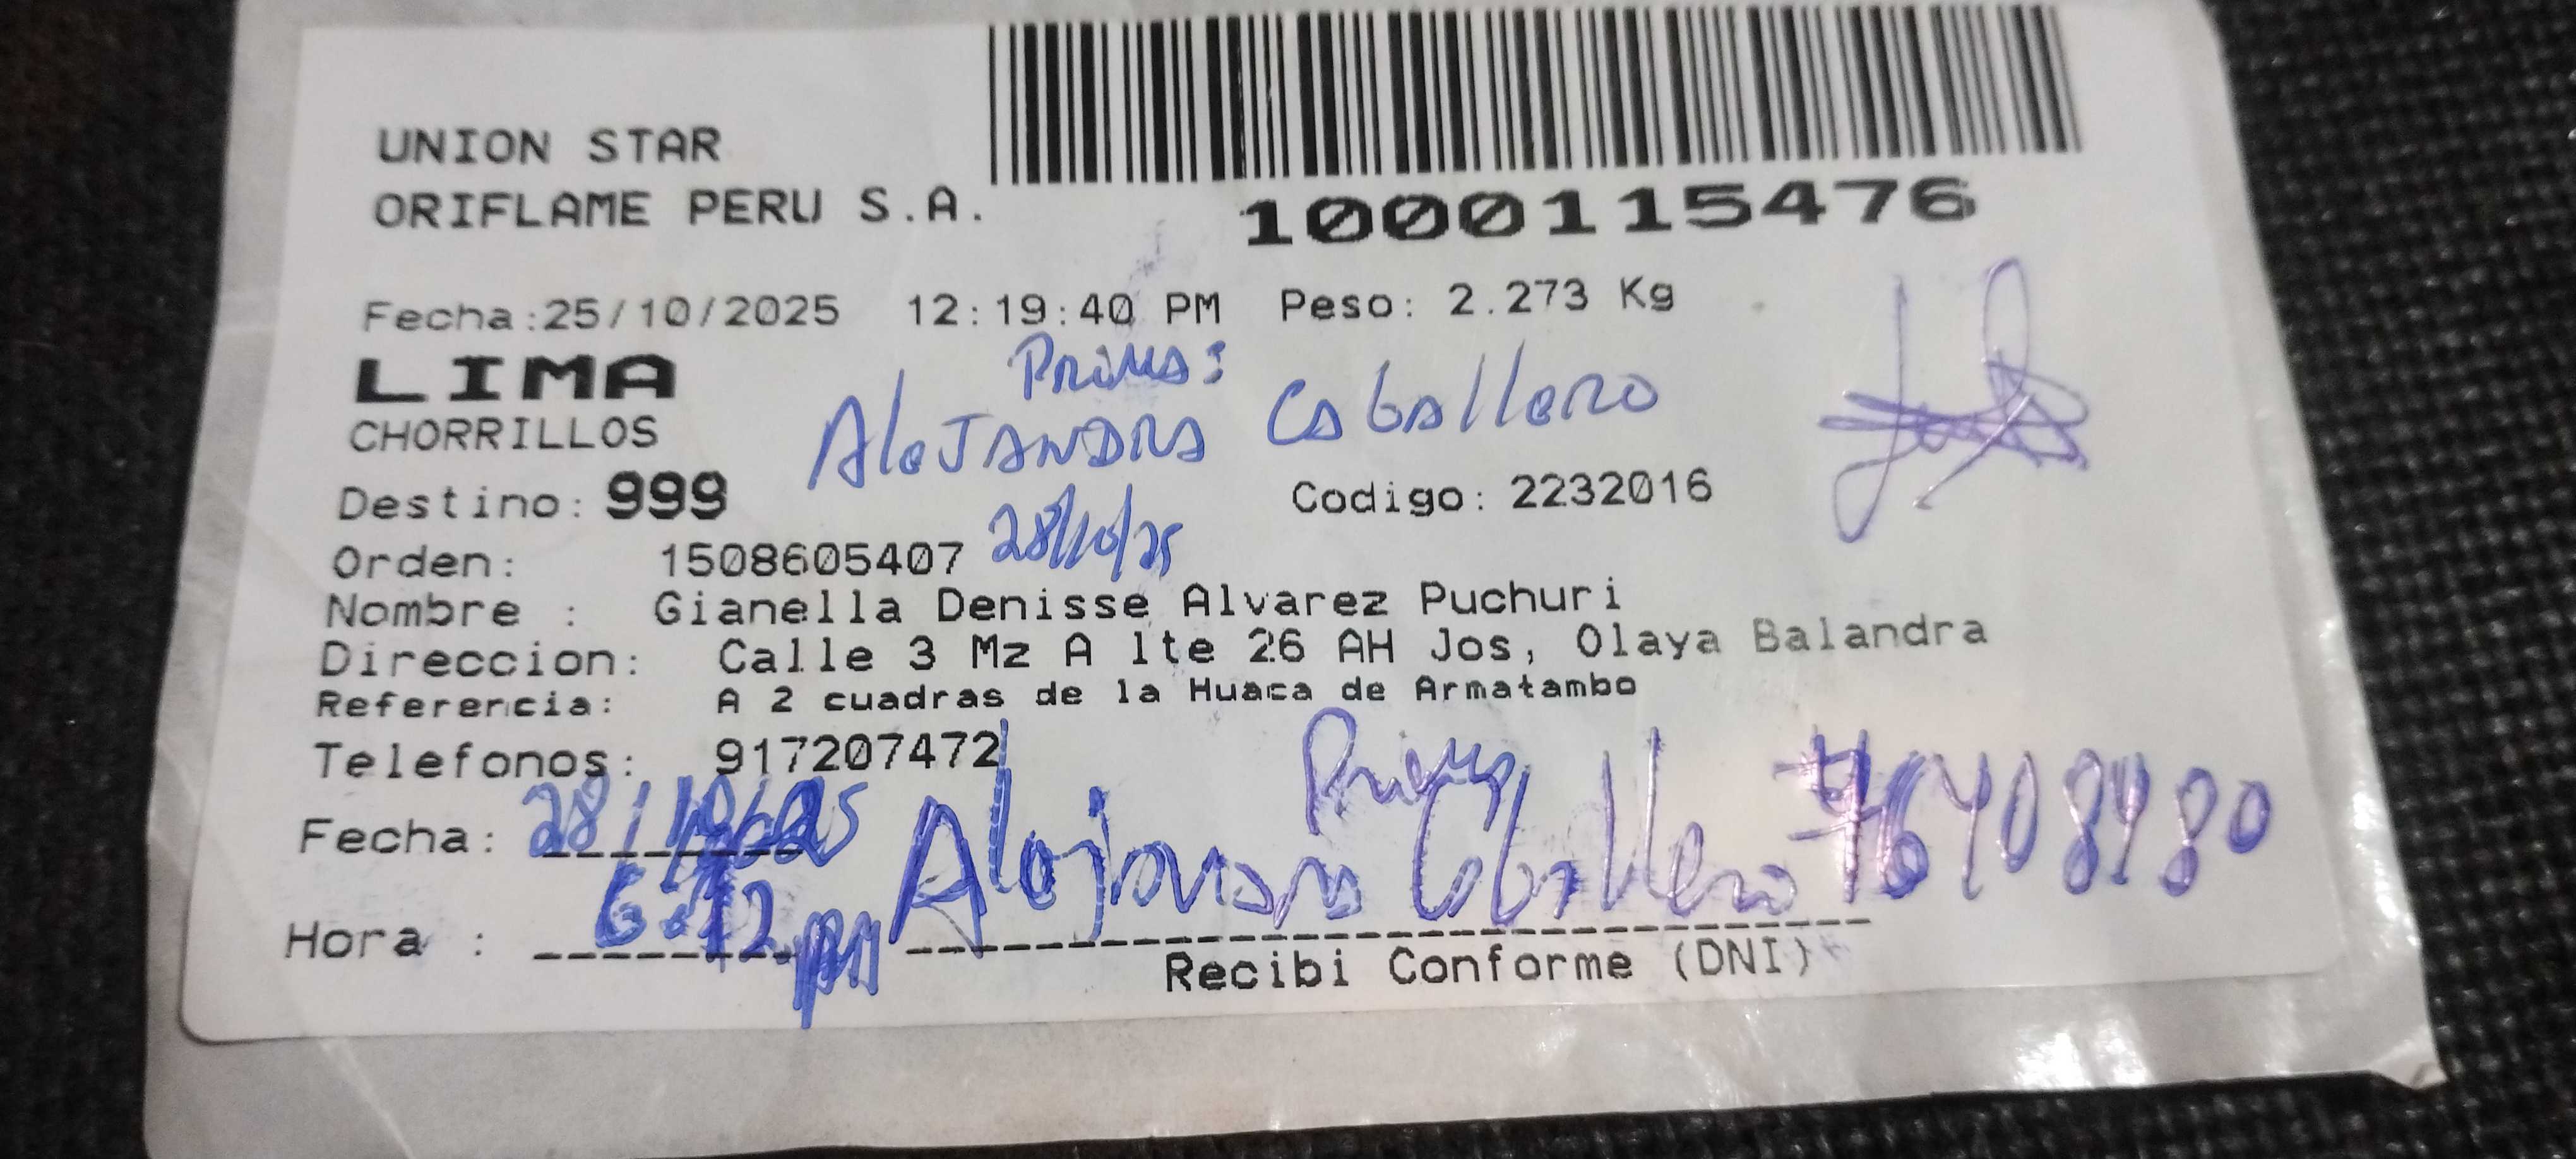 UNION STAR
ORIFLAME PERU S.A.
1000115476
Fecha:25/10/2025 12:19:40 PM Peso: 2.273 Kg
LIMA
Prima:
CHORRILLOS
AleJANDRA Caballero
Destino: 999
Codigo: 2232016
Orden: 1508605407
28/10/25
Nombre : Gianella Denisse Alvarez Puchuri
Direccion: Calle 3 Mz A lte 26 AH Jos, Olaya Balandra
Referencia: A 2 cuadras de la Huaca de Armatambo
Telefonos: 917207472
Prima
Fecha: 28/10/25
Alejandra Caballero 76408480
Hora : 6:12 pm
Recibi Conforme (DNI)